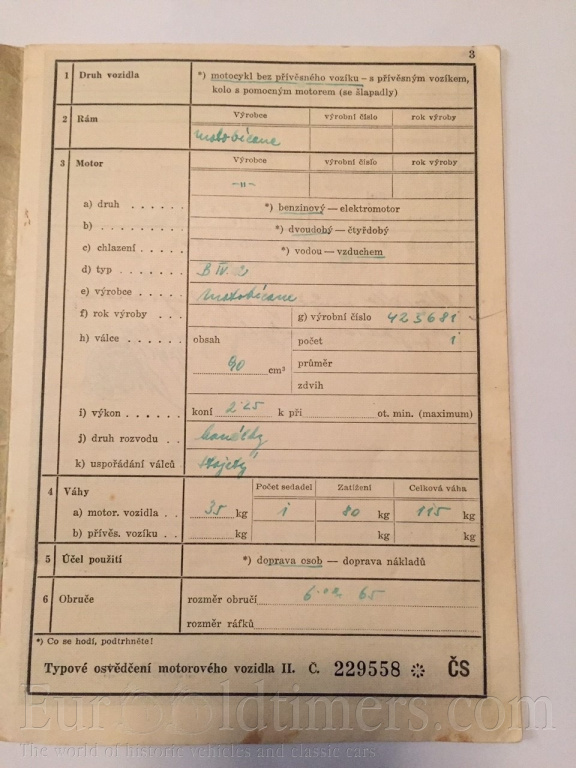 3
1 Druh vozidla *) motocykl bez přívěsného vozíku – s přívěsným vozíkem,
kolo s pomocným motorem (se šlapadly)
2 Rám Výrobce výrobní číslo rok výroby
Motobécane
3 Motor Výrobce výrobní číslo rok výroby
–"–
a) druh . . . . . . *) benzinový — elektromotor
b) . . . . . . . . . *) dvoudobý — čtyřdobý
c) chlazení . . . . . *) vodou — vzduchem
d) typ . . . . . . .
e) výrobce . . . . . Motobécane
f) rok výroby . . . g) výrobní číslo 423681
h) válce . . . . . . obsah počet 1
90 cm³ průměr
zdvih
i) výkon . . . . . . koní 2·25 k při ot. min. (maximum)
j) druh rozvodu . .
k) uspořádání válců stojatý
4 Váhy Počet sedadel Zatížení Celková váha
a) motor. vozidla . . 35 kg 1 80 kg 115 kg
b) přívěs. vozíku . . kg kg kg
5 Účel použití *) doprava osob — doprava nákladů
6 Obruče rozměr obručí 65
rozměr ráfků
*) Co se hodí, podtrhněte!
Typové osvědčení motorového vozidla II. Č. 229558 ❊ ČS
EurOOldtimers.com
The world of historic vehicles and classic cars